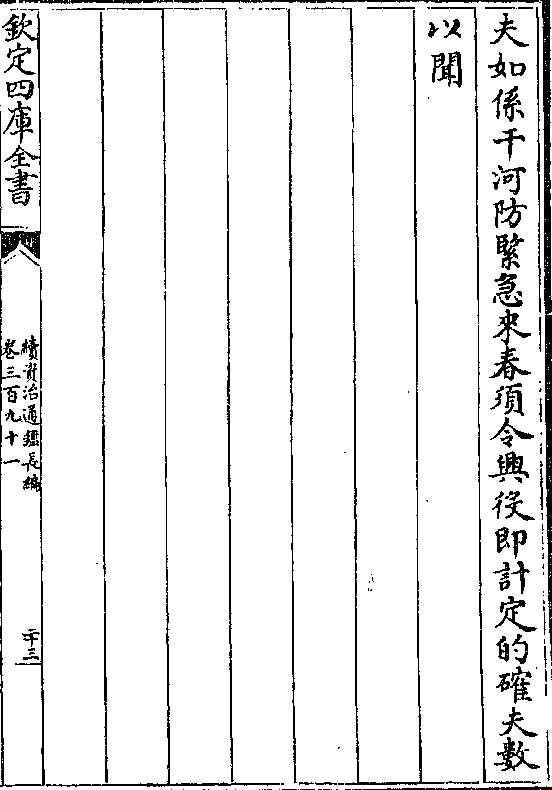 夫如係干河防緊急來春須令興役即計定的確夫數
以聞
欽定四庫全書
續資治通鑑長編
卷三百九十一
二十三